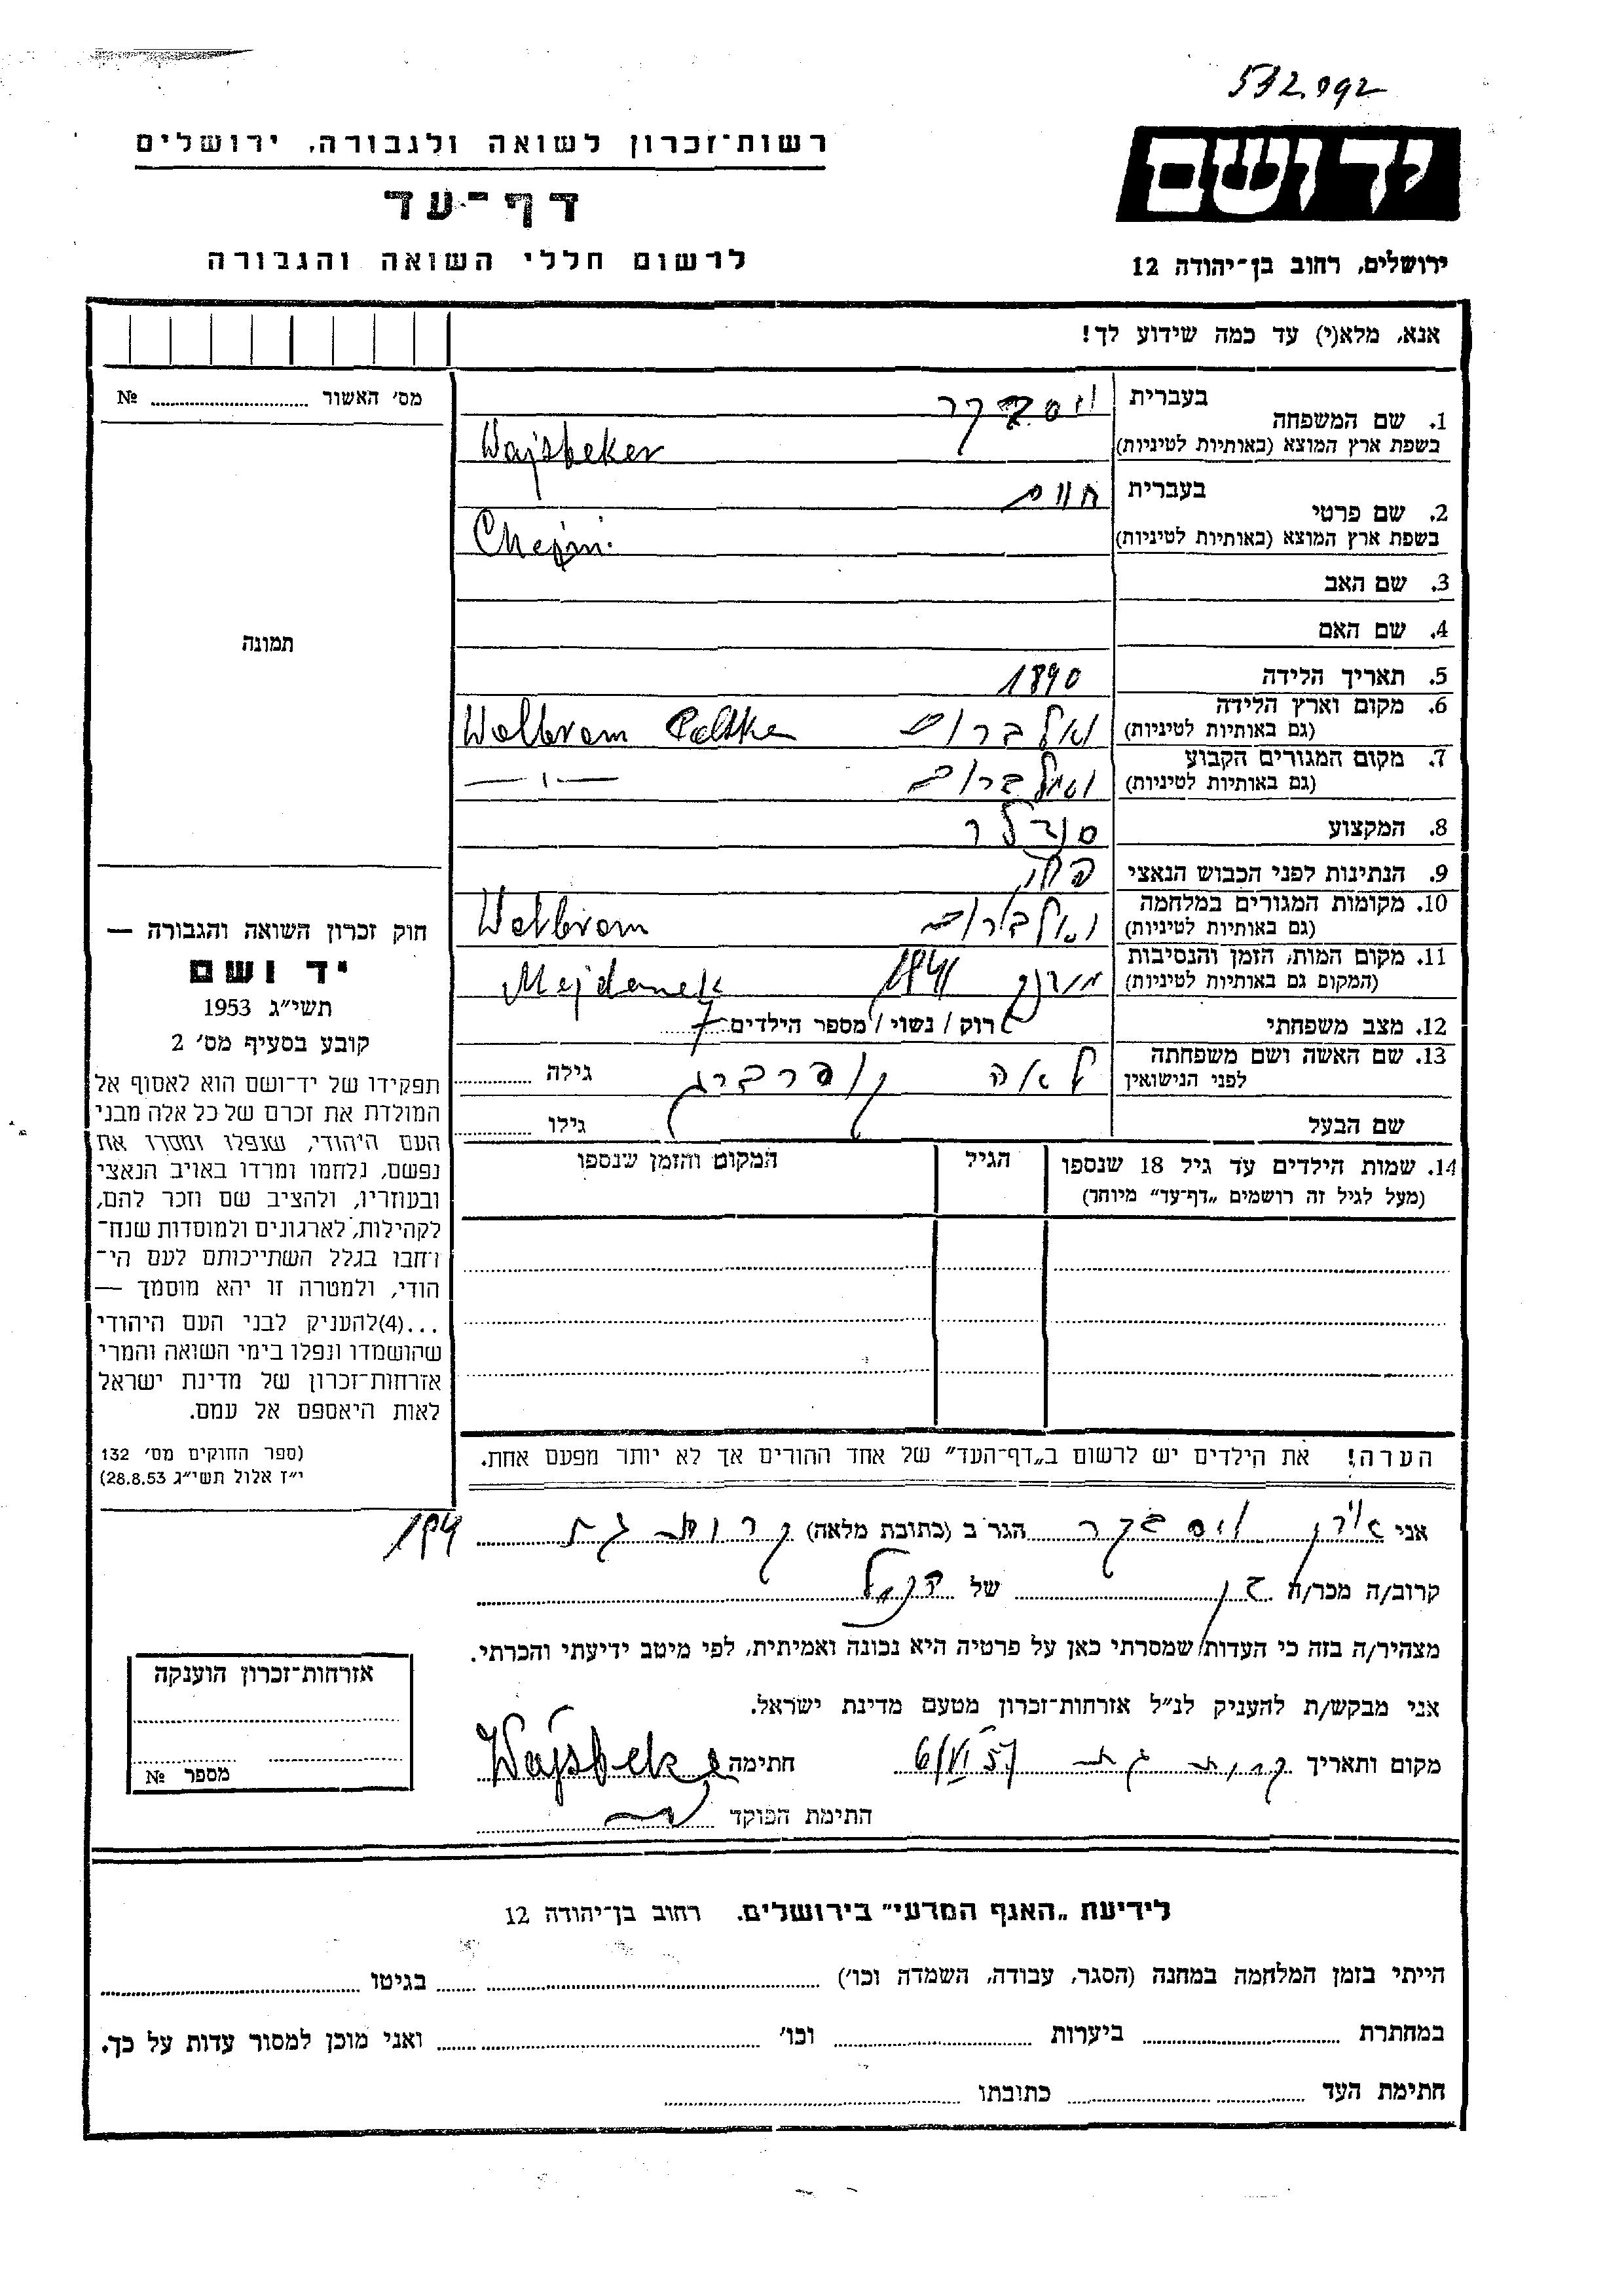 532.092
יד ושם
ירושלים, רחוב בן־יהודה 12
רשות־זכרון לשואה ולגבורה, ירושלים
דף־עד
לרשום חללי השואה והגבורה
אנא, מלא(י) עד כמה שידוע לך!
מס׳ האשור № 
תמונה
חוק זכרון השואה והגבורה —
יד ושם
תשי״ג 1953
קובע בסעיף מס׳ 2
תפקידו של יד־ושם הוא לאסוף אל
המולדת את זכרם של כל אלה מבני
העם היהודי, שנפלו ומסרו את
נפשם, נלחמו ומרדו באויב הנאצי
ובעוזריו, ולהציב שם וזכר להם,
לקהילות, לארגונים ולמוסדות שנח־
רחבו בגלל השתייכותם לעם הי־
הודי, ולמטרה זו יהא מוסמך —
...(4)להעניק לבני העם היהודי
שהושמדו ונפלו בימי השואה והמרי
אזרחות־זכרון של מדינת ישראל
לאות היאספם אל עמם.
(ספר החוקים מס׳ 132
י״ז אלול תשי״ג 28.8.53)
1. שם המשפחה
בעברית ויסבקר
בשפת ארץ המוצא (באותיות לטיניות) Wajsbeker
2. שם פרטי
בעברית חיים
בשפת ארץ המוצא (באותיות לטיניות) Chejm
3. שם האב
4. שם האם
5. תאריך הלידה 1890
6. מקום וארץ הלידה
(גם באותיות לטיניות) ואלברום Wolbrom
7. מקום המגורים הקבוע
(גם באותיות לטיניות) ואלברום — ״ —
8. המקצוע סנדלר
9. הנתינות לפני הכבוש הנאצי
10. מקומות המגורים במלחמה
(גם באותיות לטיניות) ואלברום Wolbrom
11. מקום המות, הזמן והנסיבות
(המקום גם באותיות לטיניות) 1941 Majdanek
12. מצב משפחתי רוק / נשוי / מספר הילדים 7
13. שם האשה ושם משפחתה
לפני הנישואין לאה גילה
שם הבעל גילו
14. שמות הילדים עד גיל 18 שנספו הגיל המקום והזמן שנספו
(מעל לגיל זה רושמים „דף־עד״ מיוחד)
הערה! את הילדים יש לרשום ב„דף־העד״ של אחד ההורים אך לא יותר מפעם אחת.
אני ויסבקר הגר ב (כתובת מלאה) קרית גת 194
קרוב/ה מכר/ה בן של הנ״ל
מצהיר/ה בזה כי העדות שמסרתי כאן על פרטיה היא נכונה ואמיתית, לפי מיטב ידיעתי והכרתי.
אני מבקש/ת להעניק לנ״ל אזרחות־זכרון מטעם מדינת ישראל.
מקום ותאריך קרית גת 6/VI 57 חתימה Wajsbeke
חתימת הפוקד
אזרחות־זכרון הוענקה
מספר №
לידיעת „האגף המדעי״ בירושלים. רחוב בן־יהודה 12
הייתי בזמן המלחמה במחנה (הסגר, עבודה, השמדה וכו׳) בגיטו
במחתרת ביערות וכו׳ ואני מוכן למסור עדות על כך.
חתימת העד כתובתו